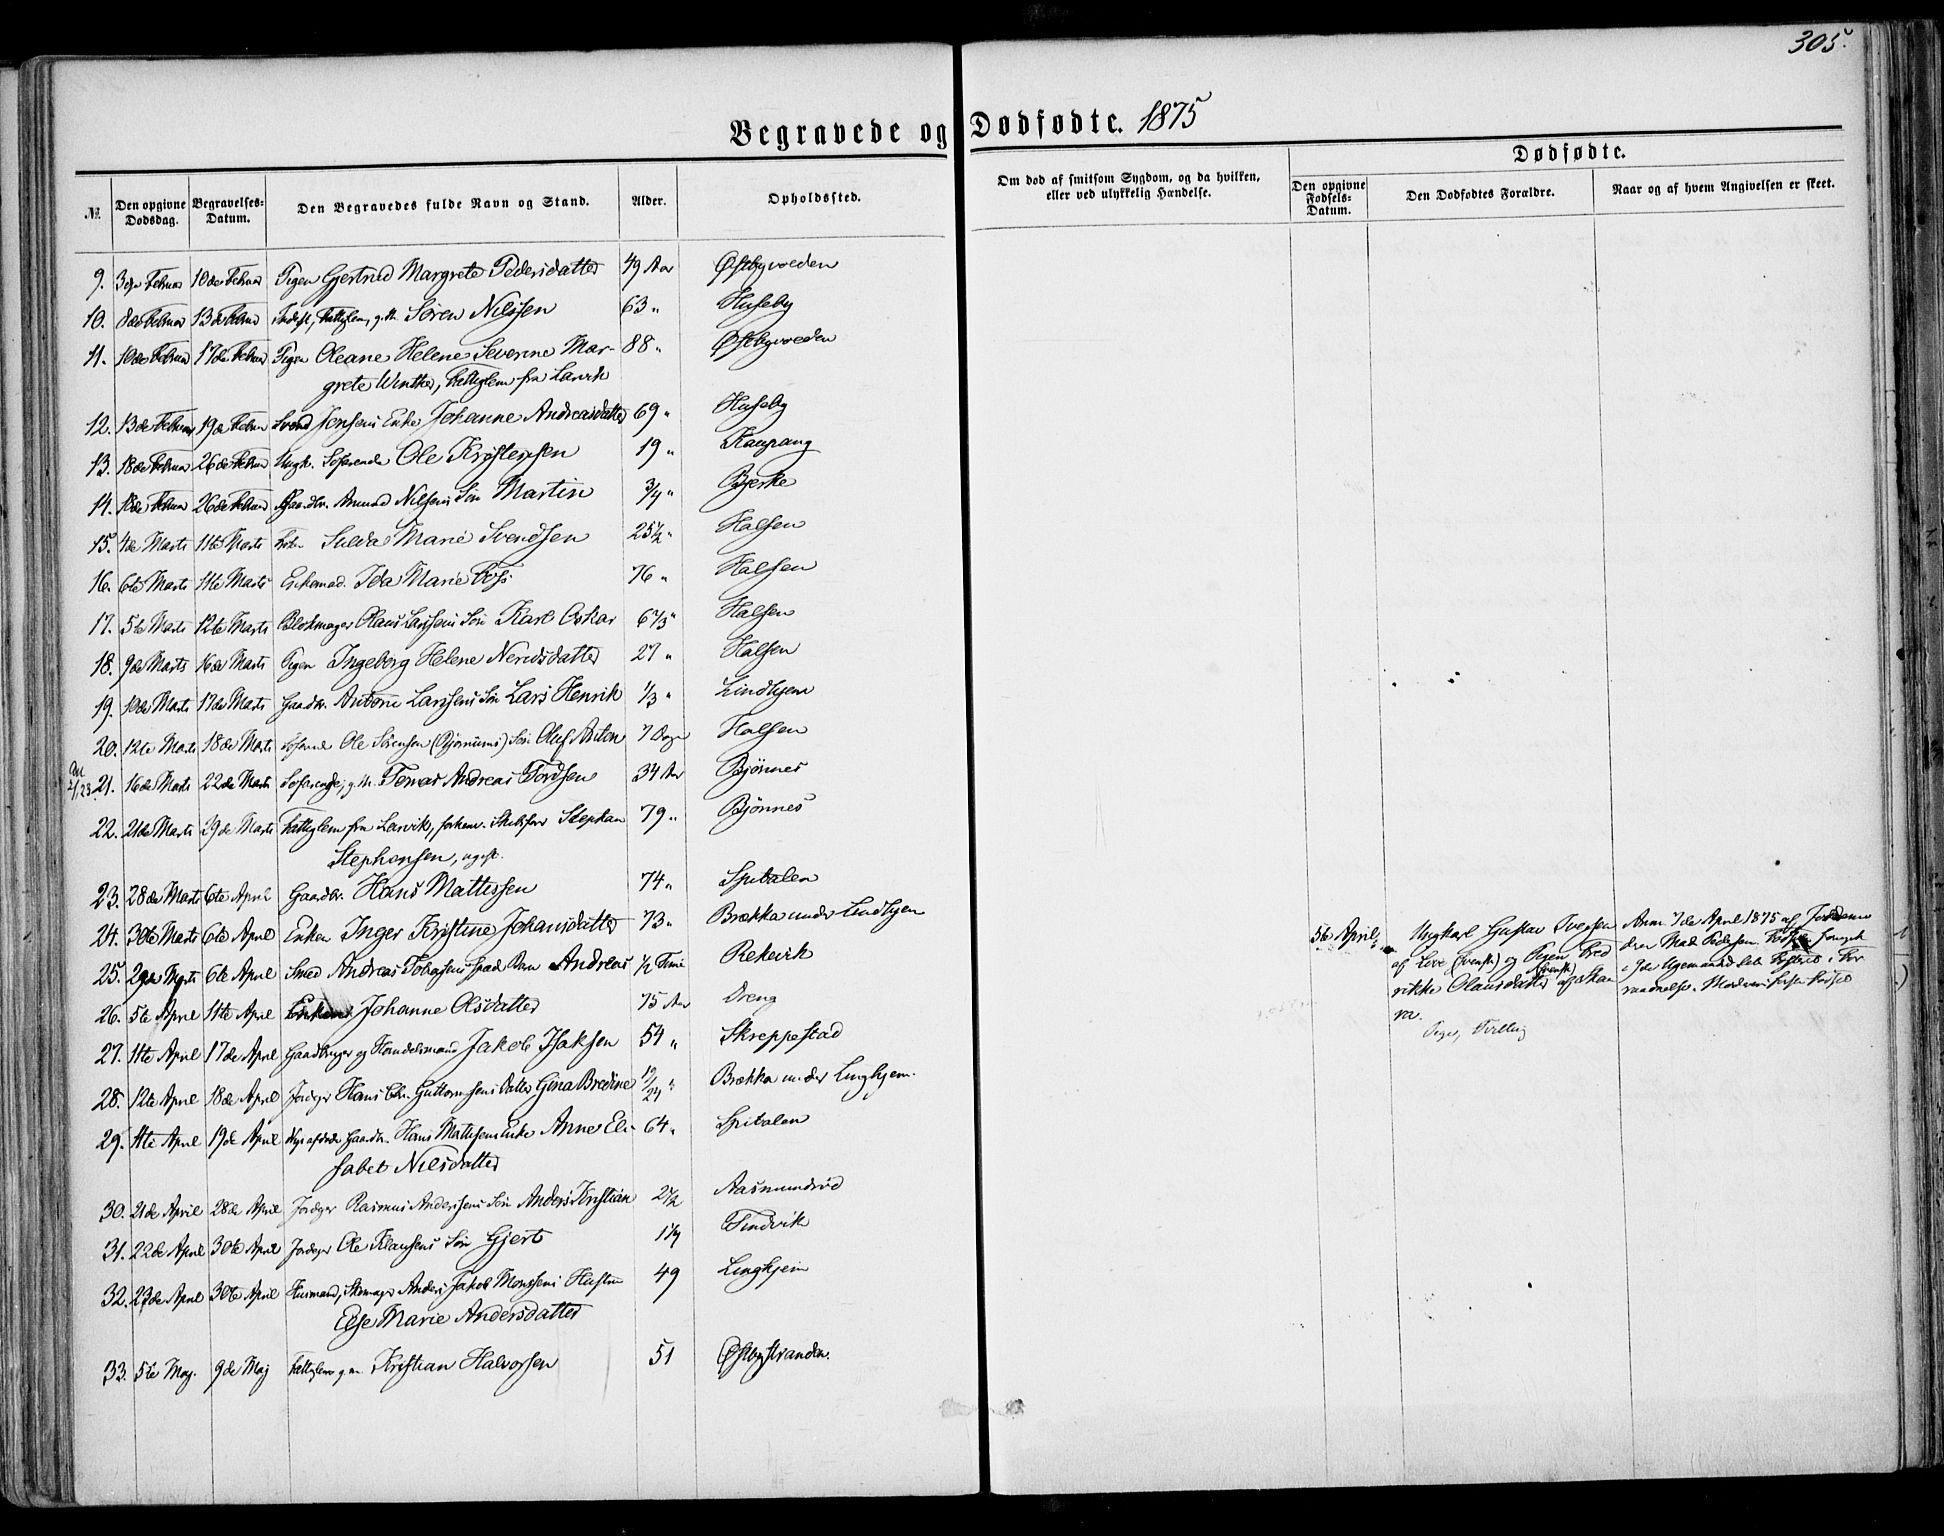 305.
Begravede og Dødfødte. 1875
Dødfødte.
№
Den opgivne Dødsdag.
Begravelses-Datum.
Den Begravedes fulde Navn og Stand.
Alder.
Opholdssted.
Om død af smitsom Sygdom, og da hvilken, eller ved ulykkelig Hændelse.
Den opgivne Fødsels-Datum.
Den Dødfødtes Forældre.
Naar og af hvem Angivelsen er skeet.
9. 3die Februar 10de Februar Pigen Gjertrud Margrete Pedersdatter 49 Aar Østbyveden
10. 8de Februar 13de Februar Inderst, Fattiglem, g. M. Søren Nilssen 63 " Huseby
11. 10de Februar 17de Februar Pigen Oleane Helene Severine Mar- 88 " Østbyveden
grete Winther, Fattiglem fra Larvik
12. 13de Februar 19de Februar Svend Jensens Enke Johanne Andreasdatter 69 " Huseby
13. 18de Februar 26de Februar Ungk. Søfarende Ole Kristensen 19 " Kaupang
14. 18de Februar 26de Februar Gaardbr. Amund Nilsens Søn Martin 3/4 " Bjerke
15. 4de Marts 11te Marts Marie Svendsen 25 1/2 " Halsen
16. 6te Marts 11te Marts Enkemad. Ida Marie Foss 76 " Halsen
17. 5te Marts 12te Marts Blokmager Olaus Larssens Søn Karl Oskar 6 1/3 " Halsen
18. 9de Marts 16de Marts Pigen Ingeborg Helene 27 " Halsen
19. 10de Marts 17de Marts Gaardbr. Anton Larssens Søn Lars Henrik 1/3 " Lindhjem
20. 12te Marts 18de Marts Søfarende Ole Sørensen (Bjørnums) Søn Oluf Anton 7 Dage Halsen
21. 16de Marts 22de Marts Søfarende, g. M. Tomas Andreas Tordsen 34 Aar Bjönnes
22. 21de Marts 29de Marts Fattiglem fra Larvik, forhenv. Skibsfører Stephan 79 " Bjönnes
Stephansen, ugift.
23. 28de Marts 6te April Gaardbr. Hans Mattissen 74 " Spitalen
24. 30te Marts 6te April Enken Inger Kristine Johansdatter 73 " Brækka under Lindhjem
25. 29de Marts 6te April Smed Andreas Tobiassens spæde Barn Andreas 1/2 Time Rekevik
26. 5te April 11te April Enken Johanne Olsdatter 75 Aar Dreng
27. 11te April 17de April Gaardbruger og Handelsmand Jakob Isaksen 54 " Skreppestad
28. 12te April 18de April Jordeger Hans Chr. Guttormsens Datter Gina Bredine 19/24 " Brækka under Linghjem.
29. 11te April 19de April Nys afdøde Gaardbr. Hans Mattissens Enke Anne Eli- 64 " Spitalen
sabet Nilsdatter
30. 21de April 28de April Jordeger Rasmus Anderssens Søn Anders Kristian 2 1/2 Aasmundrød
31. 22de April 30te April Jordeger Ole Klausens Søn Gjert 1 1/4 Tindvik
32. 23de April 30te April Husmand, Skomager Anders Jakob Monssens Hustru 49 Linghjem
Else Marie Andersdatter
33. 5te Maj. 9de Maj Fattiglem g. M. Kristian Halvorsen 51 Østbystranden.
5te April,
Ungkarl Gustav Iversen
af Love (svensk) og Pigen Fred
rikke Olausdatter (svensk) af Skan
ra.
Pige, Tvilling
Anm. 7de April 1875 af Jordemo
deren Mad. Pedersen.